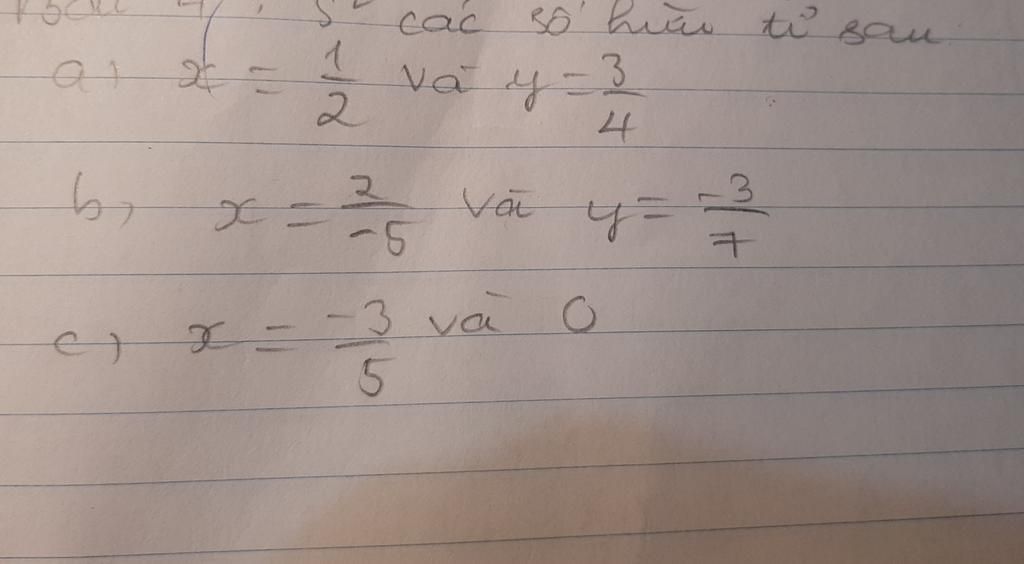 các số hữu tỉ sau
a, x = 1/2 và y = 3/4
b, x = 2/-5 và y = -3/7
c, x = -3/5 và 0